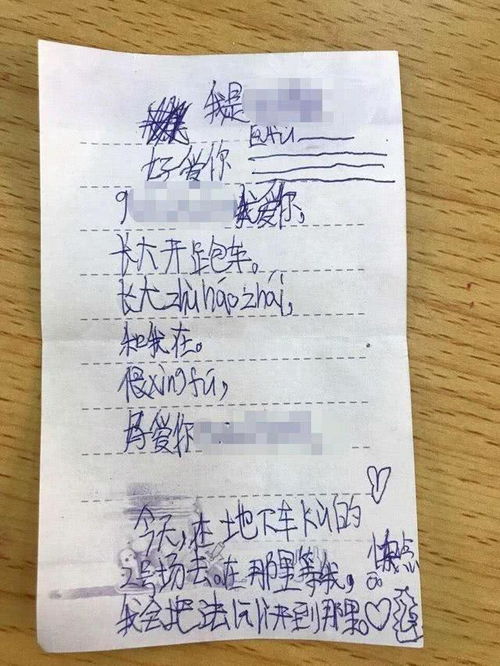 我是
好爱你
我爱你,
长大开跑车。
长大zhù háo zhái,
和我在。
很xìng fú,
好爱你
今天,在地下车kù的
2号场去。在那里等我,
我会把法 开到那里。